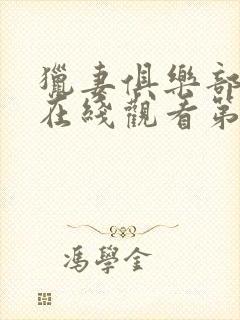 獵妻俱樂部
在綫觀看第
馮學金